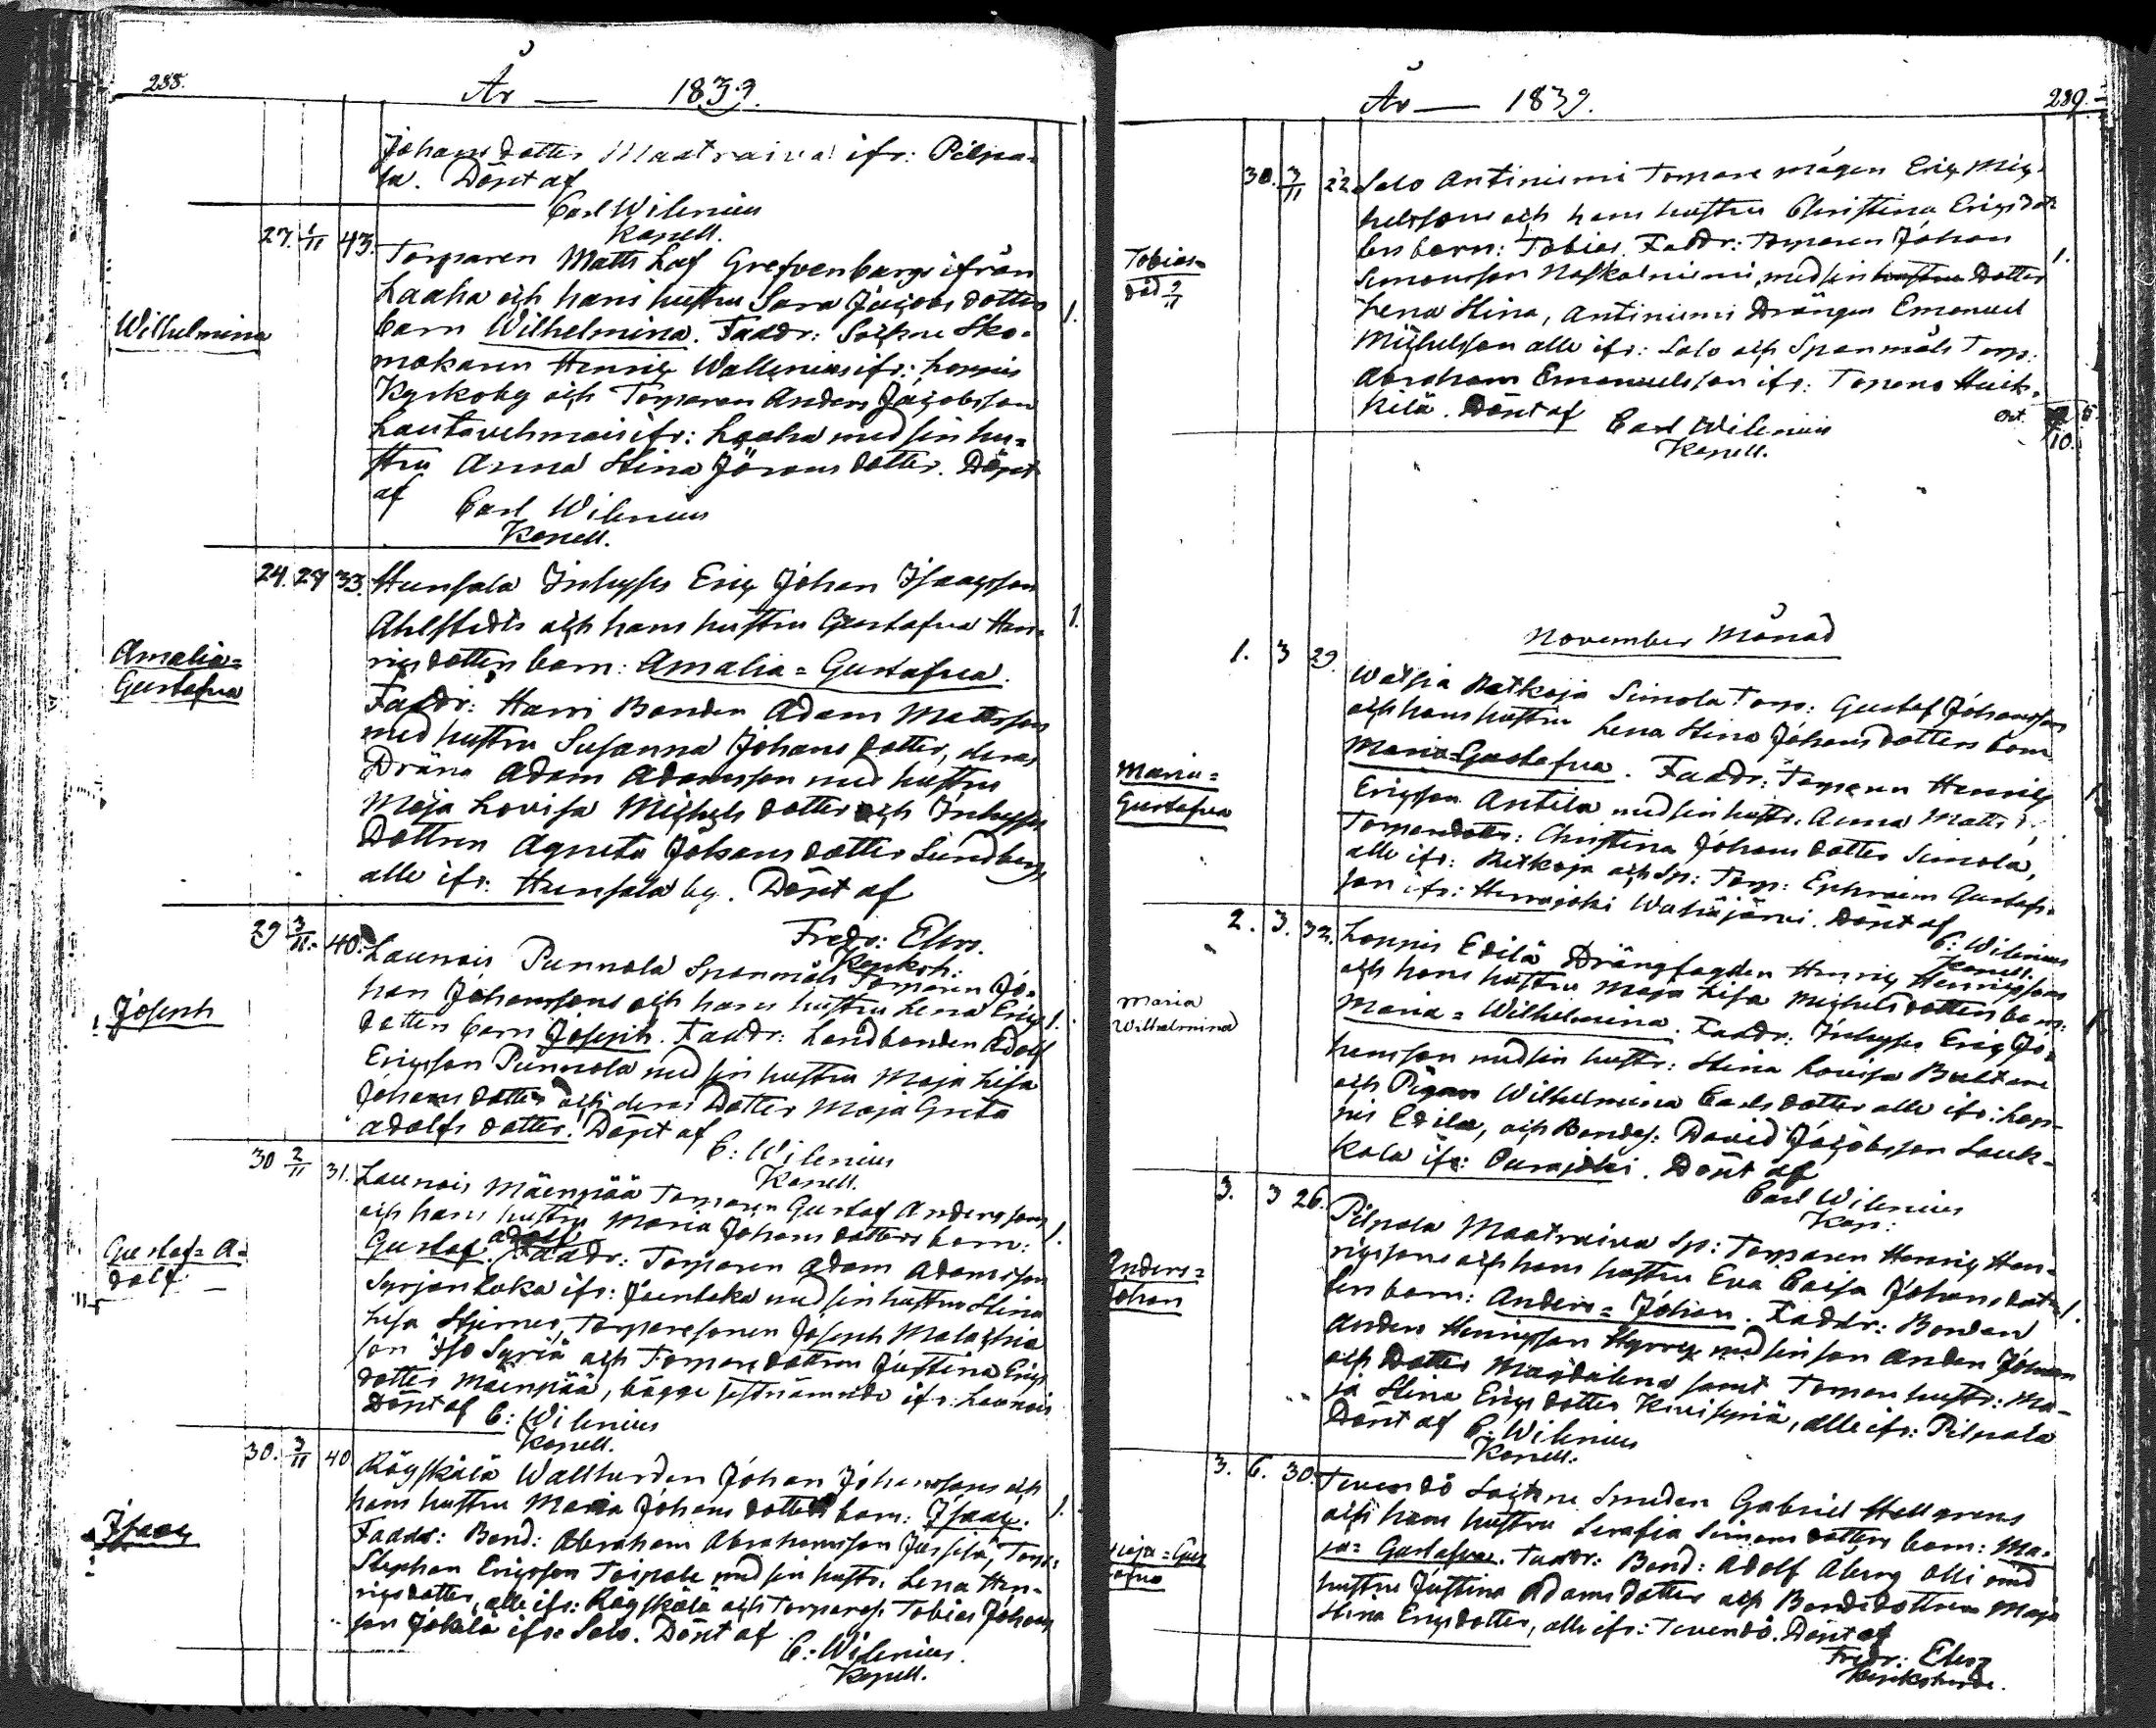 288.
År — 1839.
Johansdotter Maatraiva ifr: Pilpa=
la. Döpt af
Carl Wilenius
Kapell.
27. 1/11 43. Torparen Matts Laf Grefvenbergs ifrån
Laaha och hans hustru Sara Jacobsdotters
Wilhelmina
barn Wilhelmina. Faddr: Sockne Sko= 1.
makaren Henric Wallenius ifr: Loppis
Kyrkoby och Torparen Anders Jacobsson
Lautavehmais ifr: Laaha med sin hu=
stru Anna Stina Jöransdotter. Döpt
af Carl Wilenius
Kapell.
24. 27 33. Hunsala Inhyses Eric Johan Isaacsson
Ahlstedts och hans hustru Gustafva Hen= 1.
Amalia=
Gustafva
ricsdotters barn: Amalia=Gustafva.
Faddr: Harri Bonden Adam Mattsson
med hustru Susanna Johansdotter, deras
Dräng Adam Adamsson med hustru
Maja Lovisa Michelsdotter och Inhyses
Dottren Agneta Johansdotter Sundberg
alla ifr: Hunsala by. Döpt af
Fredr: Elers.
Kyrkoh:
29 3/11 40. Launois Punnola Spanmåls Torparen Jo=
han Johanssons och hans hustru Lena Erics 1.
Joseph
dotters barn Joseph. Faddr: Landbonden Adolf
Ericsson Punnola med sin hustru Maja Lisa
Johansdotter och deras Dotter Maja Greta
Adolfsdotter. Döpt af
C: Wilenius
Kapell.
30 2/11 31. Launois Mäenpää Torparen Gustaf Anderssons
och hans hustru Maria Johansdotters barn: 1.
Gustaf=A=
dolf
Gustaf Adolf. Faddr: Torparen Adam Adamsson
Syrjänloka ifr: Jäenloka med sin hustru Stina
Lisa Stjerne, Torparesonen Joseph Malachia
son Iso Syriä och Torparedottren Justina Erics
dotter Mäenpää, bägge sistnämnde ifr: Launois
Döpt af C: Wilenius
Kapell.
30. 3/11 40 Räyskälä Wallherden Johan Johanssons och
hans hustru Maria Johansdotters barn: Isaac. 1.
Isaac
Faddr: Bond: Abraham Abrahamsson Jussila, Torp:
Stephan Ericsson Toipale med sin hustr: Lena Hen=
ricsdotter, alle ifr: Räyskälä och Torpares: Tobias Johans
son Jokela ifr: Salo. Döpt af
C: Wilenius.
Kapell.
År — 1839.
289.
30. 3/11 22. Salo Antiniemi Torpare mågen Eric Mic=
helssons och hans hustru Christina Ericsdot=
Tobias=
död 9/11
ters barn: Tobias. Faddr: Torparen Johan 1.
Simonsson Naskalniemi, med sin hustru Dotter
Lena Stina, Antiniemi Drängen Emanuel
Michelsson alle ifr: Salo och Spanmåls Torp:
Abraham Emanuelsson ifr: Topeno Huik=
kilä. Döpt af Carl Wilenius
Kapell.
10.
November Månad
1. 3 29. Watsia Ratkoja Simola Torp: Gustaf Johanssons
och hans hustru Lena Stina Johansdotters barn
Maria=
Gustafva
Maria=Gustafva. Faddr: Torparen Henric
Ericsson Antila med sin hustr: Anna Mattsd:, 1.
Torparedottr: Christina Johansdotter Simola,
alle ifr: Ratkoja och Sp: Torp: Ephraim Gustafs=
son ifr: Herrajoki Watiajärvi. Döpt af
C: Wilenius
Kapell.
2. 3. 32. Loppis Edilä Drängfogden Henric Henricssons
och hans hustru Maja Lisa Michelsdotters barn:
Maria
Wilhelmina
Maria=Wilhelmina. Faddr: Inhyses Eric Jo= 1.
hansson med sin hustr: Stina Lovisa Bultare
och Pigan Wilhelmina Carlsdotter alle ifr: Lop=
pis Edila, och Bondes: David Jacobsson Lauk=
kala ifr: Ourajoki. Döpt af
Carl Wilenius
Kap:
3. 3 26. Pilpala Maatraiva Sp: Torparen Henric Hen=
ricssons och hans hustru Eva Caisa Johansdot= 1.
Anders=
Johan
ters barn: Anders=Johan. Faddr: Bonden
Anders Henricsson Hyrry med sin son Anders Johan
och Dotter Magdalena samt Torpare hustr: Ma=
ja Stina Ericsdotter Kivisyriä, alle ifr: Pilpala
Döpt af C: Wilenius
Kapell.
3. 6. 30. Tevendö Sockne Smeden Gabriel Hellgrens
och hans hustru Serafia Simonsdotters barn: Ma=
ja=Gustafva. Faddr: Bond: Adolf Aberg Olli med 1
hustru Justina Adamsdotter och Bondedottren Maja
Stina Ericsdotter, alle ifr: Tevendö. Döpt af
Fredr: Elers
Kyrkoherde.